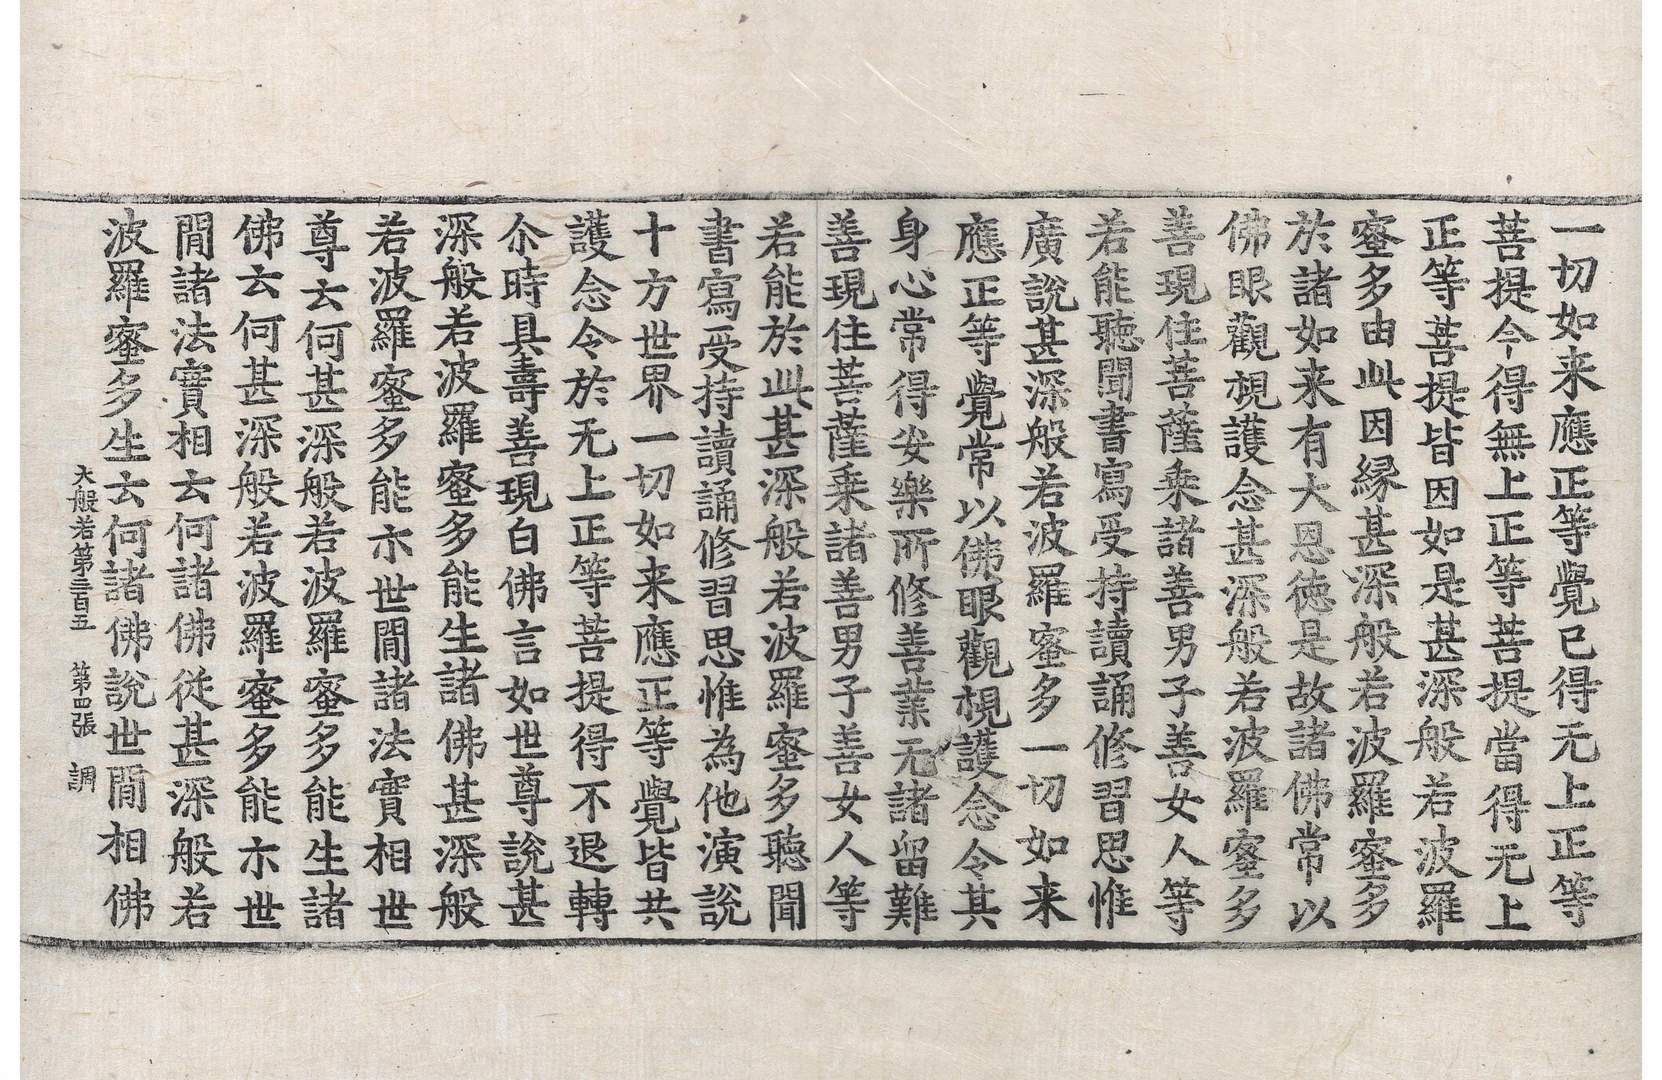 一切如来應正等覺已得无上正等
菩提今得無上正等菩提當得无上
正等菩提皆因如是甚深般若波羅
蜜多由此因緣甚深般若波羅蜜多
於諸如来有大恩徳是故諸佛常以
佛眼觀視護念甚深般若波羅蜜多
善現住菩薩乗諸善男子善女人等
若能聽聞書寫受持讀誦修習思惟
廣說甚深般若波羅蜜多一切如来
應正等覺常以佛眼觀視護念令其
身心常得安樂所修善業无諸留難
善現住菩薩乗諸善男子善女人等
若能於此甚深般若波羅蜜多聽聞
書寫受持讀誦修習思惟為他演說
十方世界一切如来應正等覺皆共
護念令於无上正等菩提得不退轉
尒時具壽善現白佛言如世尊說甚
深般若波羅蜜多能生諸佛甚深般
若波羅蜜多能示世閒諸法實相世
尊云何甚深般若波羅蜜多能生諸
佛云何甚深般若波羅蜜多能示世
閒諸法實相云何諸佛從甚深般若
波羅蜜多生云何諸佛說世閒相佛
大般若第三百五 第四張 調